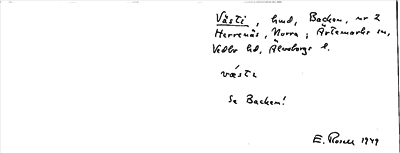 Västi, hmd, Backen, nr 2
Herrenäs, Norra; Ärtemarks sn,
Vedbo hd, Älvsborgs l.
västı
Se Backen!
E. Rosell 1949